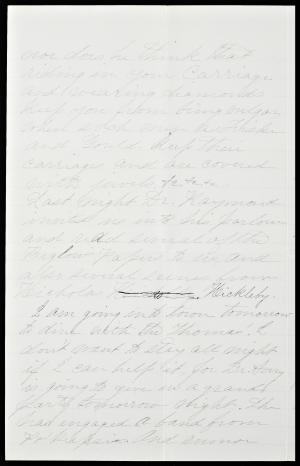 nor does he think that
riding in your Carriage
and wearing diamonds
keep you from being vulgar
when such men as
and Gould keep their
carriages and are covered
with jewels, &c &c &c
Last night Dr. Raymond
invited us into his parlour
and read several of the
Biglow Papers to us and
also several scenes from
Nicholas Nickleby.
I am going into town tomorrow
to dine with the Thomas'. I
don't want to stay all night
if I can help it, for
is going to give us a grand
party tomorrow night. She
has engaged a band from
and supper